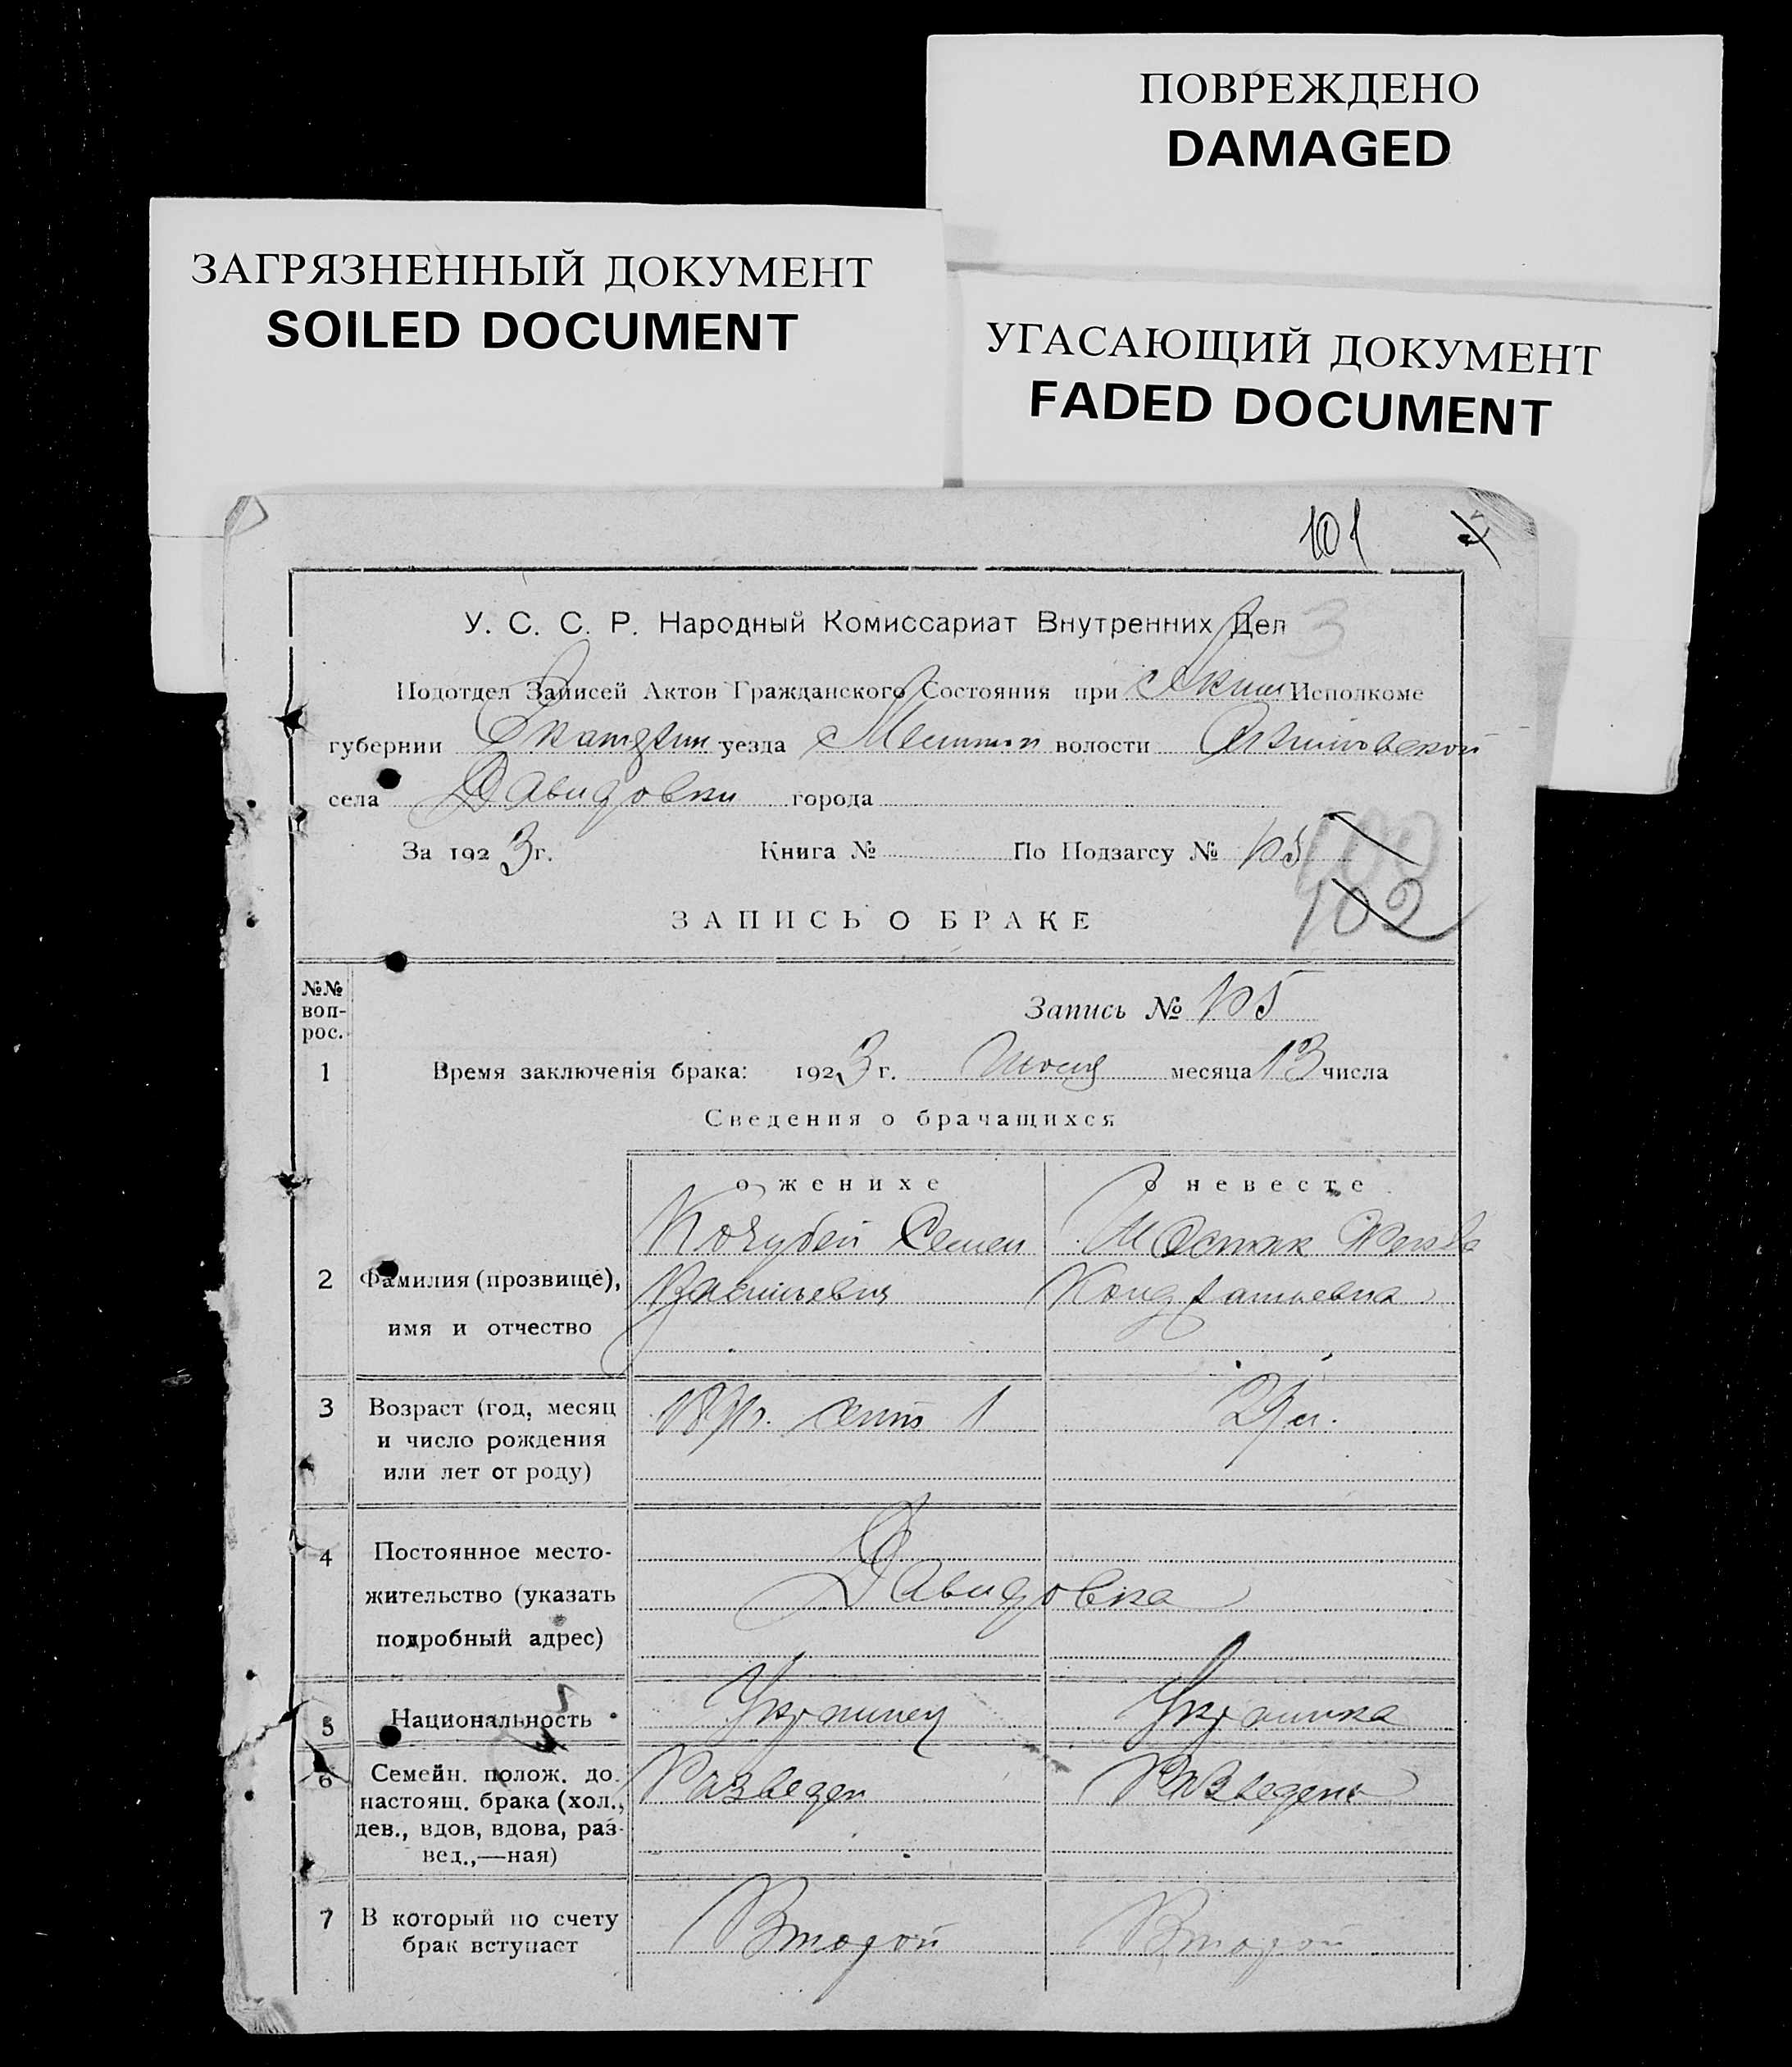 ПОВРЕЖДЕНО
DAMAGED
ЗАГРЯЗНЕННЫЙ ДОКУМЕНТ
SOILED DOCUMENT
УГАСАЮЩИЙ ДОКУМЕНТ
FADED DOCUMENT
101
У. С. С. Р. Народный Комиссариат Внутренних Дел 3
Подотдел Записей Актов Гражданского Состояния при Аким Исполкоме
губернии уезда волости Акимовской
села Давидовки города
За 1923 г. Книга № По Подзагсу № 105
100
102
ЗАПИСЬ О БРАКЕ
№№ воп-рос.
Запись № 105
1 Время заключенія брака: 1923 г. месяца 13 числа
Сведения о брачащихся
о женихе о невесте
Кочубей Семен Шостак
2 Фамилия (прозвище), Васильевич Кондратьевна
имя и отчество
3 Возраст (год, месяц сент 1
и число рождения
или лет от роду)
4 Постоянное место-
жительство (указать Давидовка
подробный адрес)
5 Национальность Украинец Украинка
6 Семейн. полож. до Разведен Разведена
настоящ. брака (хол.,
дев., вдов, вдова, раз-
вед.,—ная)
7 В который по счету Второй Второй
брак вступает